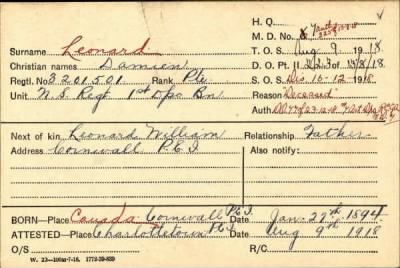 H. Q.
M. D. No.
Surname Leonard T. O. S. Aug 9 1918
Christian names Damien D. O. Pt. II 223 of 13/8/18
Regtl. No 3201501 Rank Pte S. O. S. Dec 16-12-1918
Unit N.S. Regt 1st Depo Bn Reason Deceased
Auth.
Next of kin Leonard William Relationship Father
Address Cornwall P.E.I Also notify:
BORN—Place Canada Cornwall P.E.I Date Jan. 22nd 1894
ATTESTED—Place Charlottetown P.E.I Date Aug 9th 1918
O/S R/C
W. 22—100M-7-18. 1772-39-839